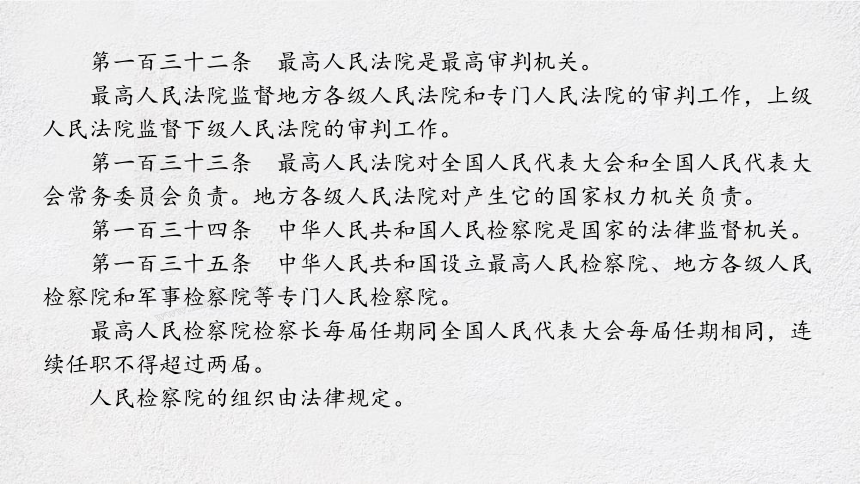 第一百三十二条　最高人民法院是最高审判机关。
最高人民法院监督地方各级人民法院和专门人民法院的审判工作，上级
人民法院监督下级人民法院的审判工作。
第一百三十三条　最高人民法院对全国人民代表大会和全国人民代表大
会常务委员会负责。地方各级人民法院对产生它的国家权力机关负责。
第一百三十四条　中华人民共和国人民检察院是国家的法律监督机关。
第一百三十五条　中华人民共和国设立最高人民检察院、地方各级人民
检察院和军事检察院等专门人民检察院。
最高人民检察院检察长每届任期同全国人民代表大会每届任期相同，连
续任职不得超过两届。
人民检察院的组织由法律规定。